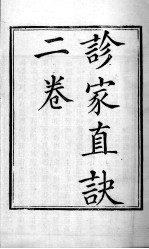 診家直訣
二卷